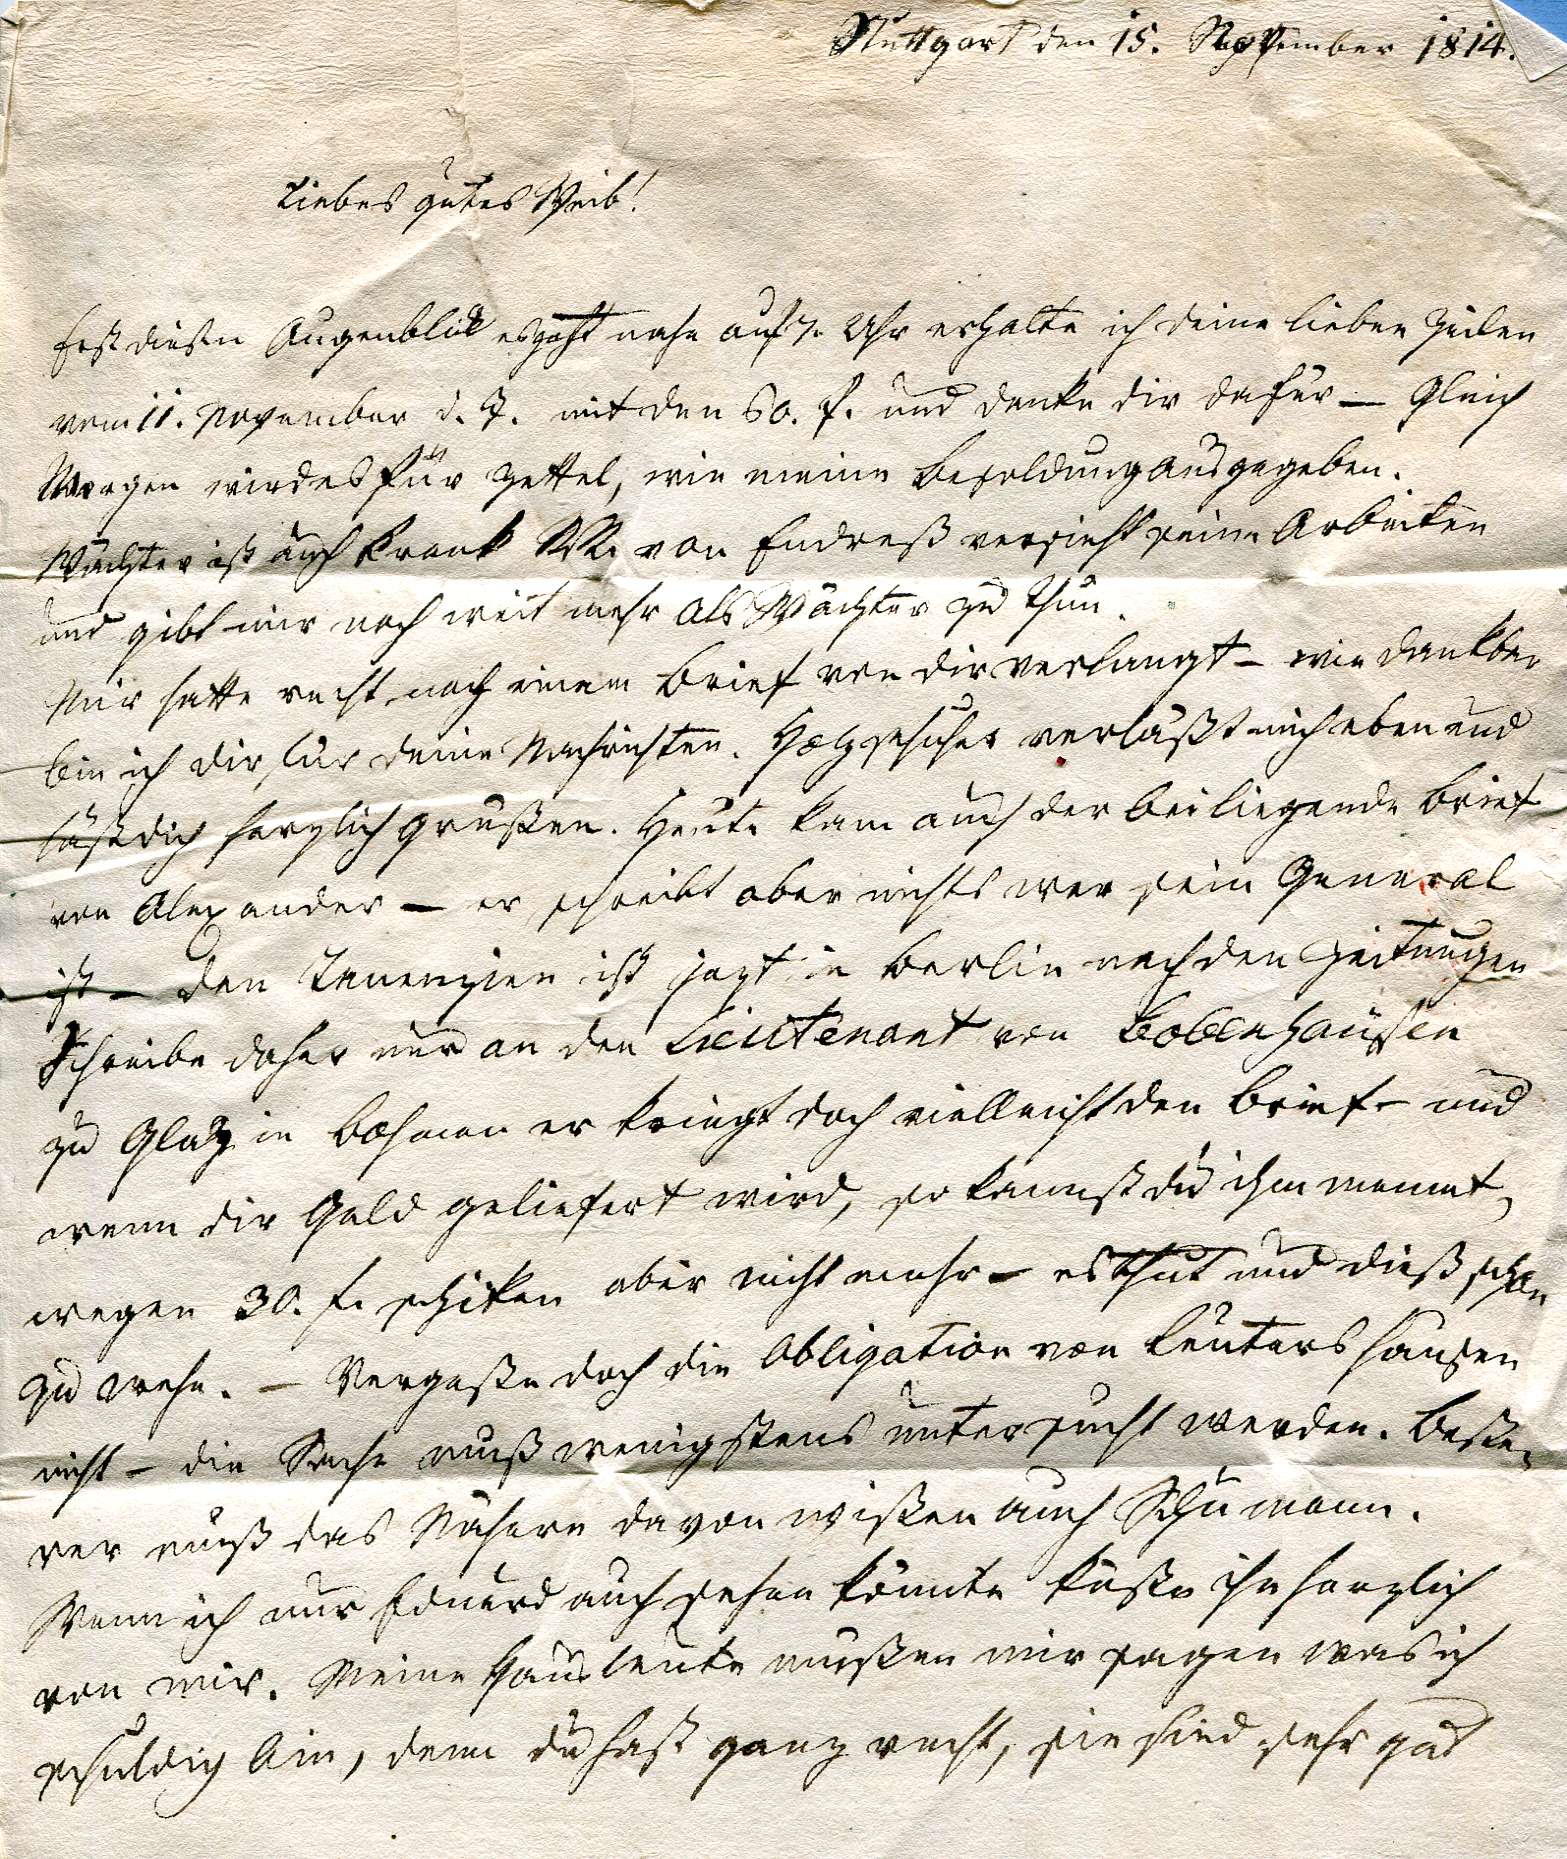 Stuttgart den 15. November 1814.
Liebes gutes Weib!
Erst diesen Augenblik es geht nahe auf 7. Uhr erhalte ich deine lieben Zeilen
vom 11. November d. J. mit den 50. f. und danke dir dafür — Gleich
Morgen wird es für Zettel, wie meine Besoldung ausgegeben.
Wächter ist auch krank von Endreß versieht seine Arbeiten
und gibt mir noch weit mehr als Wächter zu thun.
Mir hatte recht nach einem Brief von dir verlangt — wie dankbar
bin ich dir für deine Nachrichten. Holzschuher verläßt mich eben und
läßt dich herzlich grüßen. Heute kam auch der beiliegende Brief
von Alexander — er schreibt aber nichts wer sein General
ist — den Tauenzien ist jezt in Berlin nach den Zeitungen
Schreibe daher nur an den Lieutenant von Bobenhausen
zu Glatz in Böhmen er kriegt doch vielleicht den Brief — und
wenn dir Geld geliefert wird, so kannst du ihm
wegen 30. f. schiken aber nicht mehr — es thut uns dieß schon
zu wehe. — Vergesse doch die Obligation von Leutershausen
nicht — die Sache muß wenigstens untersucht werden.
rer muß das Nähere davon wißen auch Schumann.
Wenn ich nur Eduard auch sehen könnte küsse ihn herzlich
von mir. Meine Hausleute müßen mir sagen was ich
schuldig bin, denn du hast ganz recht, sie sind sehr gut